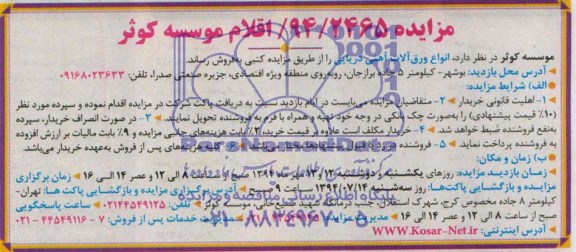 مزایده ۹۴/۲۴۶۵/ اقلام موسسه کوثر
موسسه کوثر در نظر دارد، انواع ورق‌آلات آهنی دریایی را از طریق مزایده کتبی به‌فروش رساند.
آدرس محل بازدید: بوشهر- کیلومتر ۵ جاده برازجان، روبه‌روی منطقه ویژه اقتصادی، جزیره صنعتی صدرا، تلفن: ۰۹۱۶۸۰۲۳۶۳۳
الف) شرایط مزایده:
۱- اهلیت قانونی خریدار ۲- متقاضیان مزایده می‌بایست در ایام بازدید نسبت به دریافت پاکت شرکت در مزایده اقدام نموده و سپرده مورد نظر
(۱۰٪ قیمت پیشنهادی) را به‌صورت چک بانکی در وجه خود تهیه و همراه با فرم به فروشنده تحویل نمایند. ۳- در صورت انصراف خریدار، سپرده
به‌نفع فروشنده ضبط خواهد شد. ۴- خریدار مکلف است علاوه بر قیمت خرید، ۳٪ بابت هزینه‌های جانبی مزایده و ۹٪ بابت مالیات بر ارزش افزوده
به فروشنده پرداخت نماید. ۵- فروشنده در رد یا قبول پیشنهادها هزینه‌های پس از فروش به‌عهده خریدار می‌باشد.
ب) زمان و مکان:
زمان بازدید مزایده: روزهای یکشنبه و دوشنبه ۱۳۹۴ صبح از ساعت ۸ الی ۱۲ و عصر ۱۴ الی ۱۶ زمان برگزاری
مزایده و بازگشایی پاکت‌ها: روز سه‌شنبه ۱۳۹۴/۰۷/۱۴ ساعت ۹ صبح آدرس برگزاری مزایده و بازگشایی پاکت‌ها: تهران-
کیلومتر ۸ جاده مخصوص کرج، شهرک استقلال، جنب درمانگاه شهید موسسه کوثر تلفن: ۰۲۱۴۴۵۴۹۱۲۵ ساعت پاسخگویی
صبح از ساعت ۸ الی ۱۲ و عصر ۱۴ الی ۱۶ مدیریت مزایده مدیریت خدمات پس از فروش: ۷-۴۴۵۴۹۱۱۶-۰۲۱
آدرس اینترنتی: www.Kosar-Net.ir
پایگاه اطلاع رسانی مناقصه و مزایده
۰۲۱-۸۸۳۴۹۶۷۰-۵